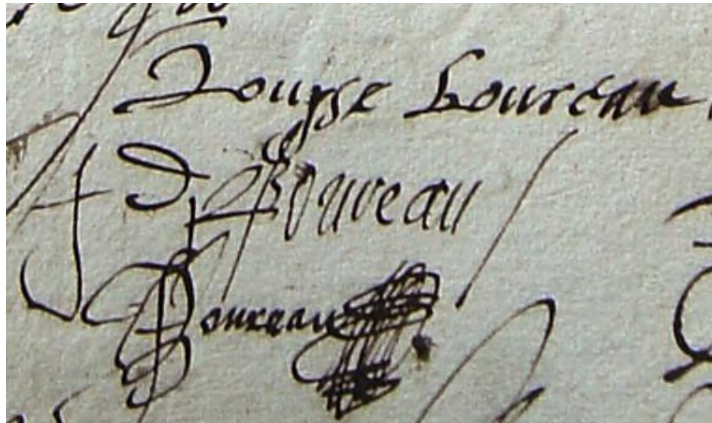 Louysse Boureau
d Boureau
Boureau